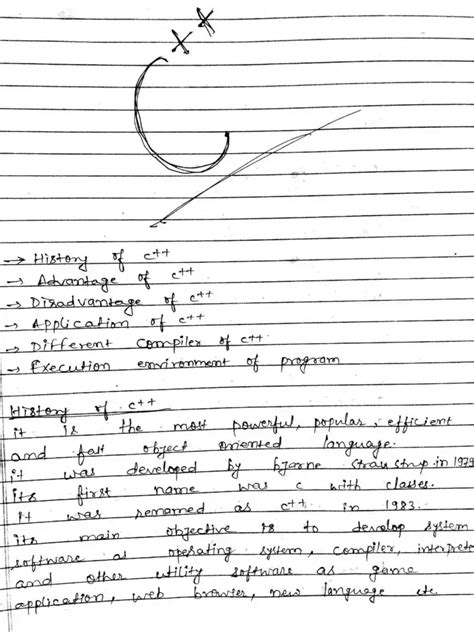 C++
→ History of c++
→ Advantage of c++
→ Disadvantage of c++
→ Application of c++
→ Different compiler of c++
→ Execution environment of program
History of c++
it is the most powerful, popular, efficient
and fast object oriented language.
it was developed by bjarne straustrup in 1979
its first name was c with classes.
it was renamed as c++ in 1983.
its main objective is to develop system
software as operating system, compiler, interprete
and other utility software as game
application, web browser, new language etc